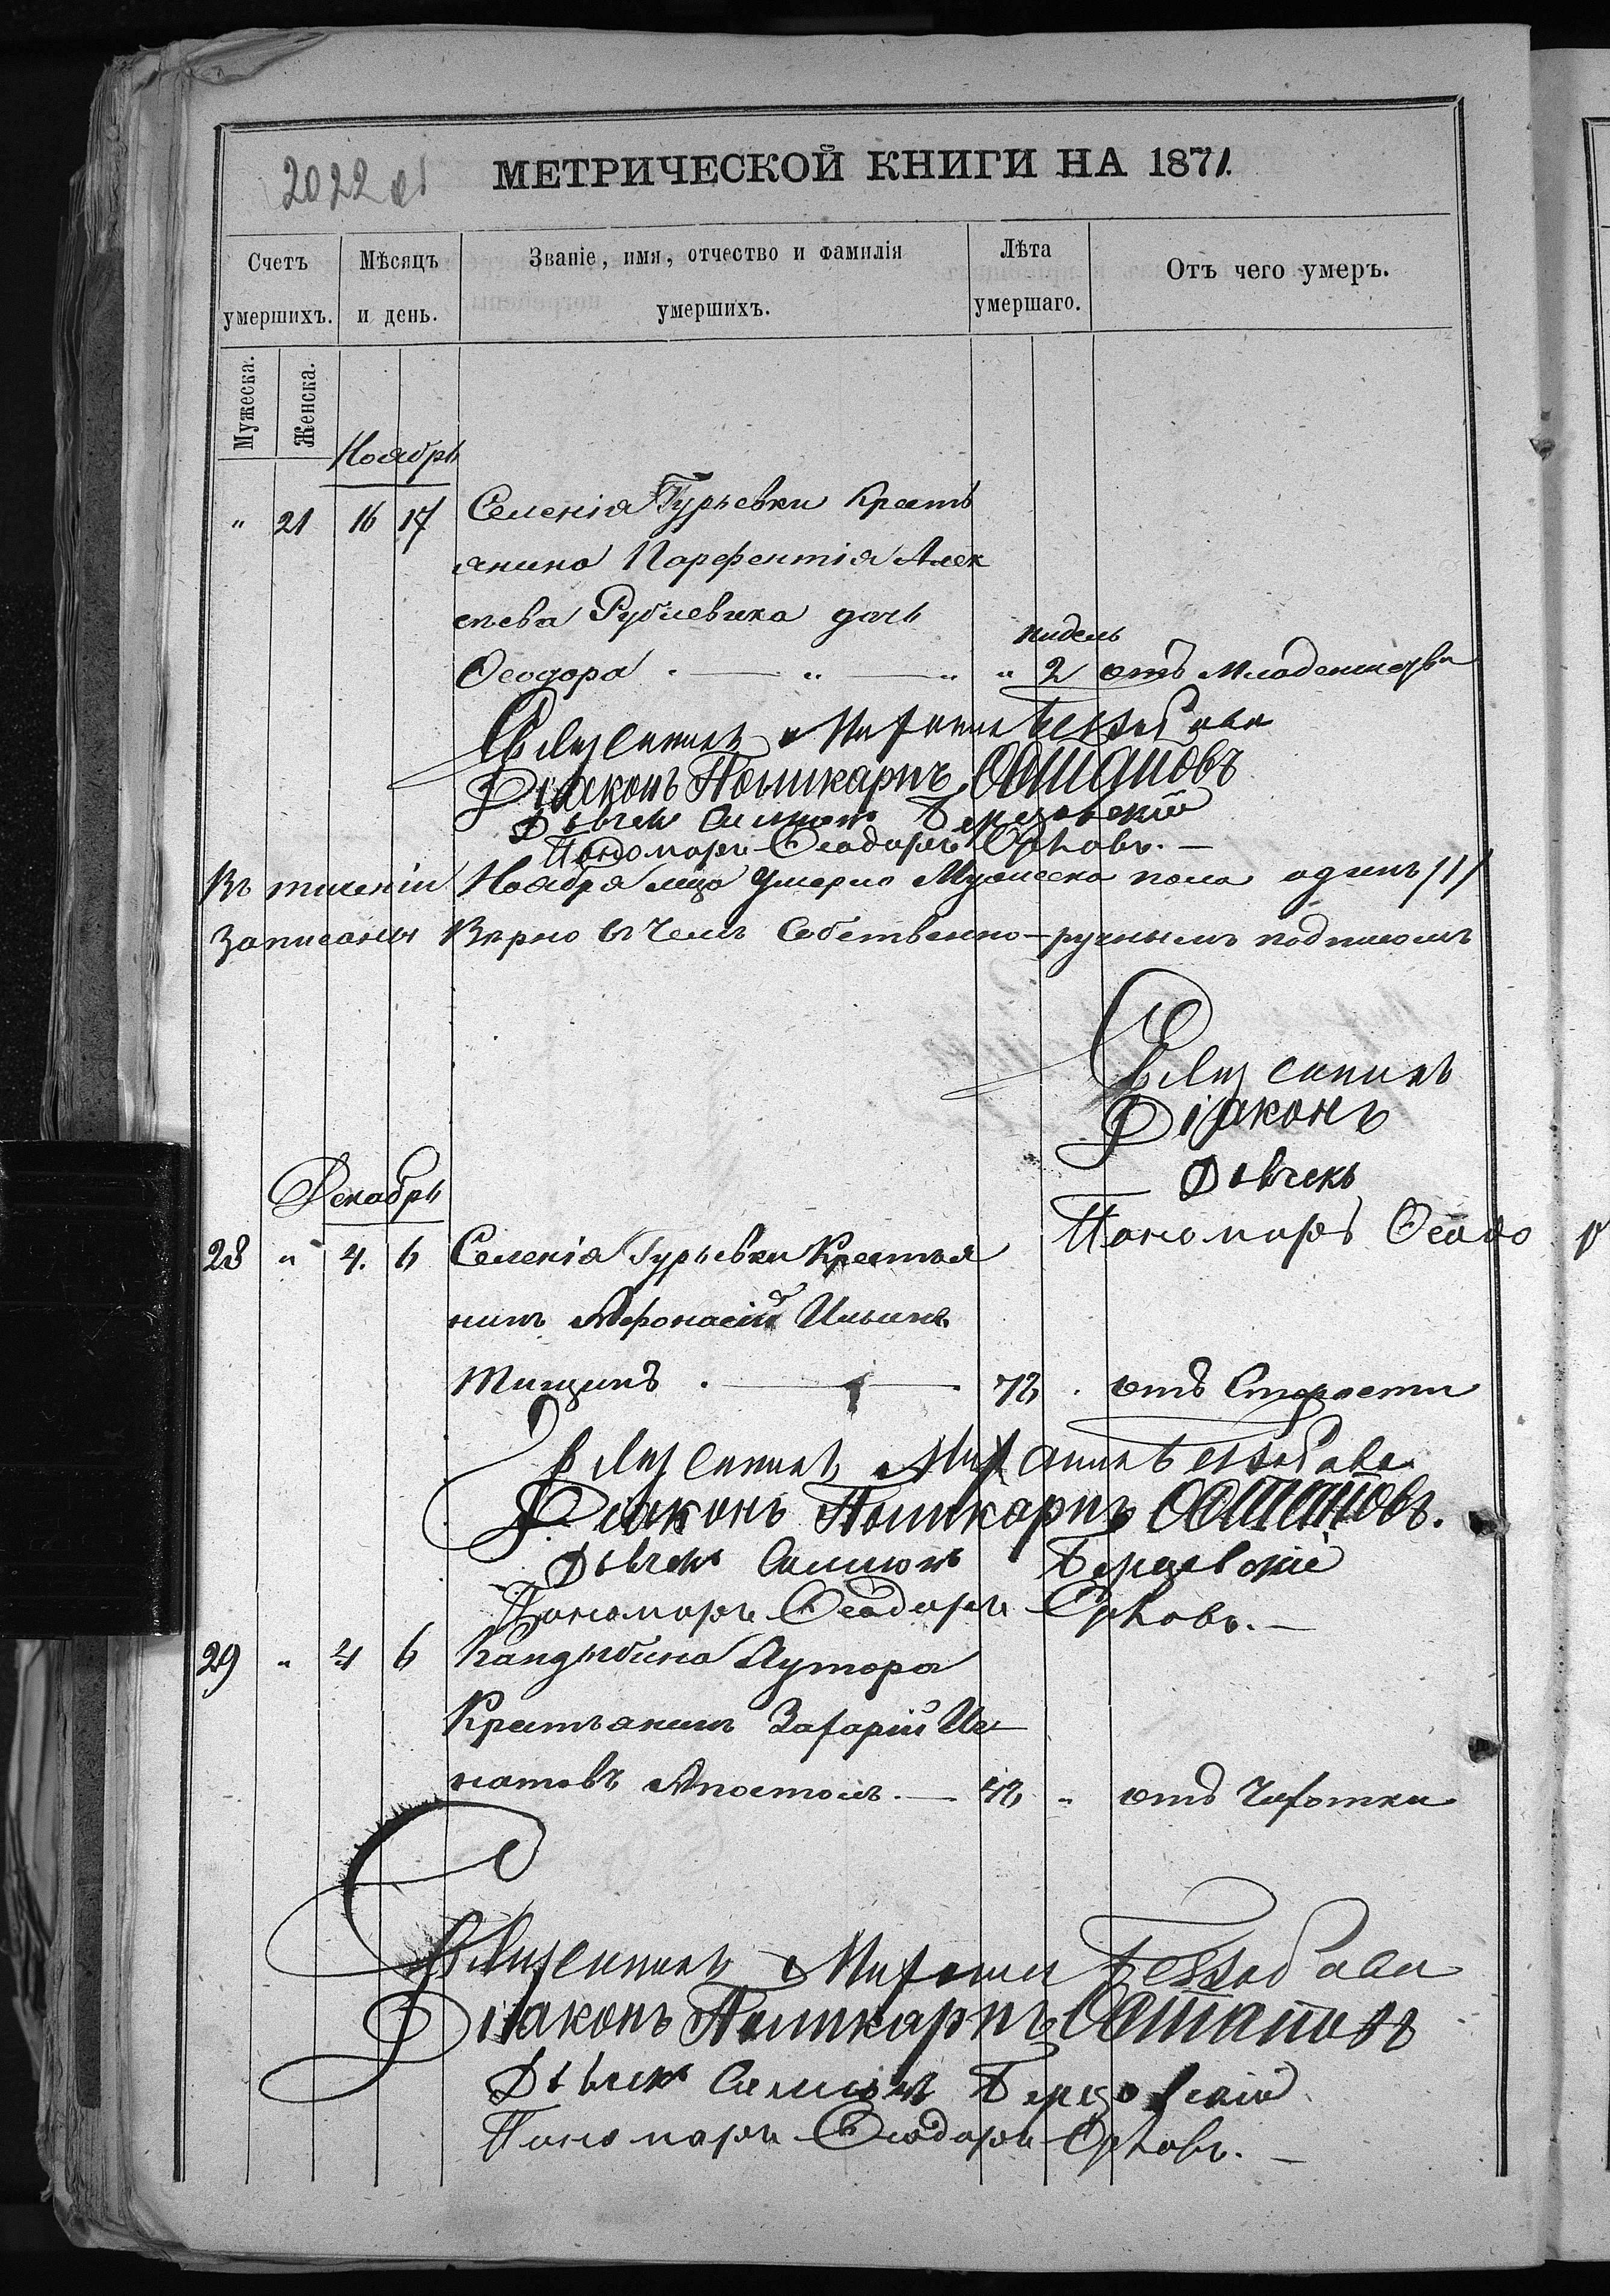 2022 об
МЕТРИЧЕСКОЙ КНИГИ НА 1871.
Счетъ умершихъ.
Мѣсяцъ и день.
Званіе, имя, отчество и фамилія умершихъ.
Лѣта умершаго.
Отъ чего умеръ.
Мужеска.
Женска.
Ноябрь
" 21 16 17 Селенія Гурьевки Кресть
янина Парфентія Алек
сѣева дочь
нидель
Феодора " " " 2 отъ Младенчества
Священникъ
Діаконъ Поликарпъ Остаповъ
Дьячекъ Симеонъ
Пономарь Феодоръ Орловъ. —
Въ теченіи Ноября м-ца умерло Мужеска пола одинъ /1/
Записаны Вѣрно въ чемъ Собственно-ручнымъ подписомъ
Священникъ
Діаконъ
Дьячекъ
Пономарь Феодо р
Декабрь
28 " 4. 6 Селенія Гурьевки Крестья
нинъ Афонасій Ильинъ
Тищинъ . — . 72 . отъ Старости
Священникъ
Діаконъ Поликарпъ Остаповъ.
Дьячекъ Симеонъ
Пономарь Феодоръ Орловъ. —
29 " 4 6 Кандыбина Хутора
Крестьянинъ Захарій Иг
натовъ Апостолъ. — 42 " отъ Чахотки
Священникъ
Діаконъ Поликарпъ Остаповъ
Дьячекъ Симеонъ
Пономарь Феодоръ Орловъ. —